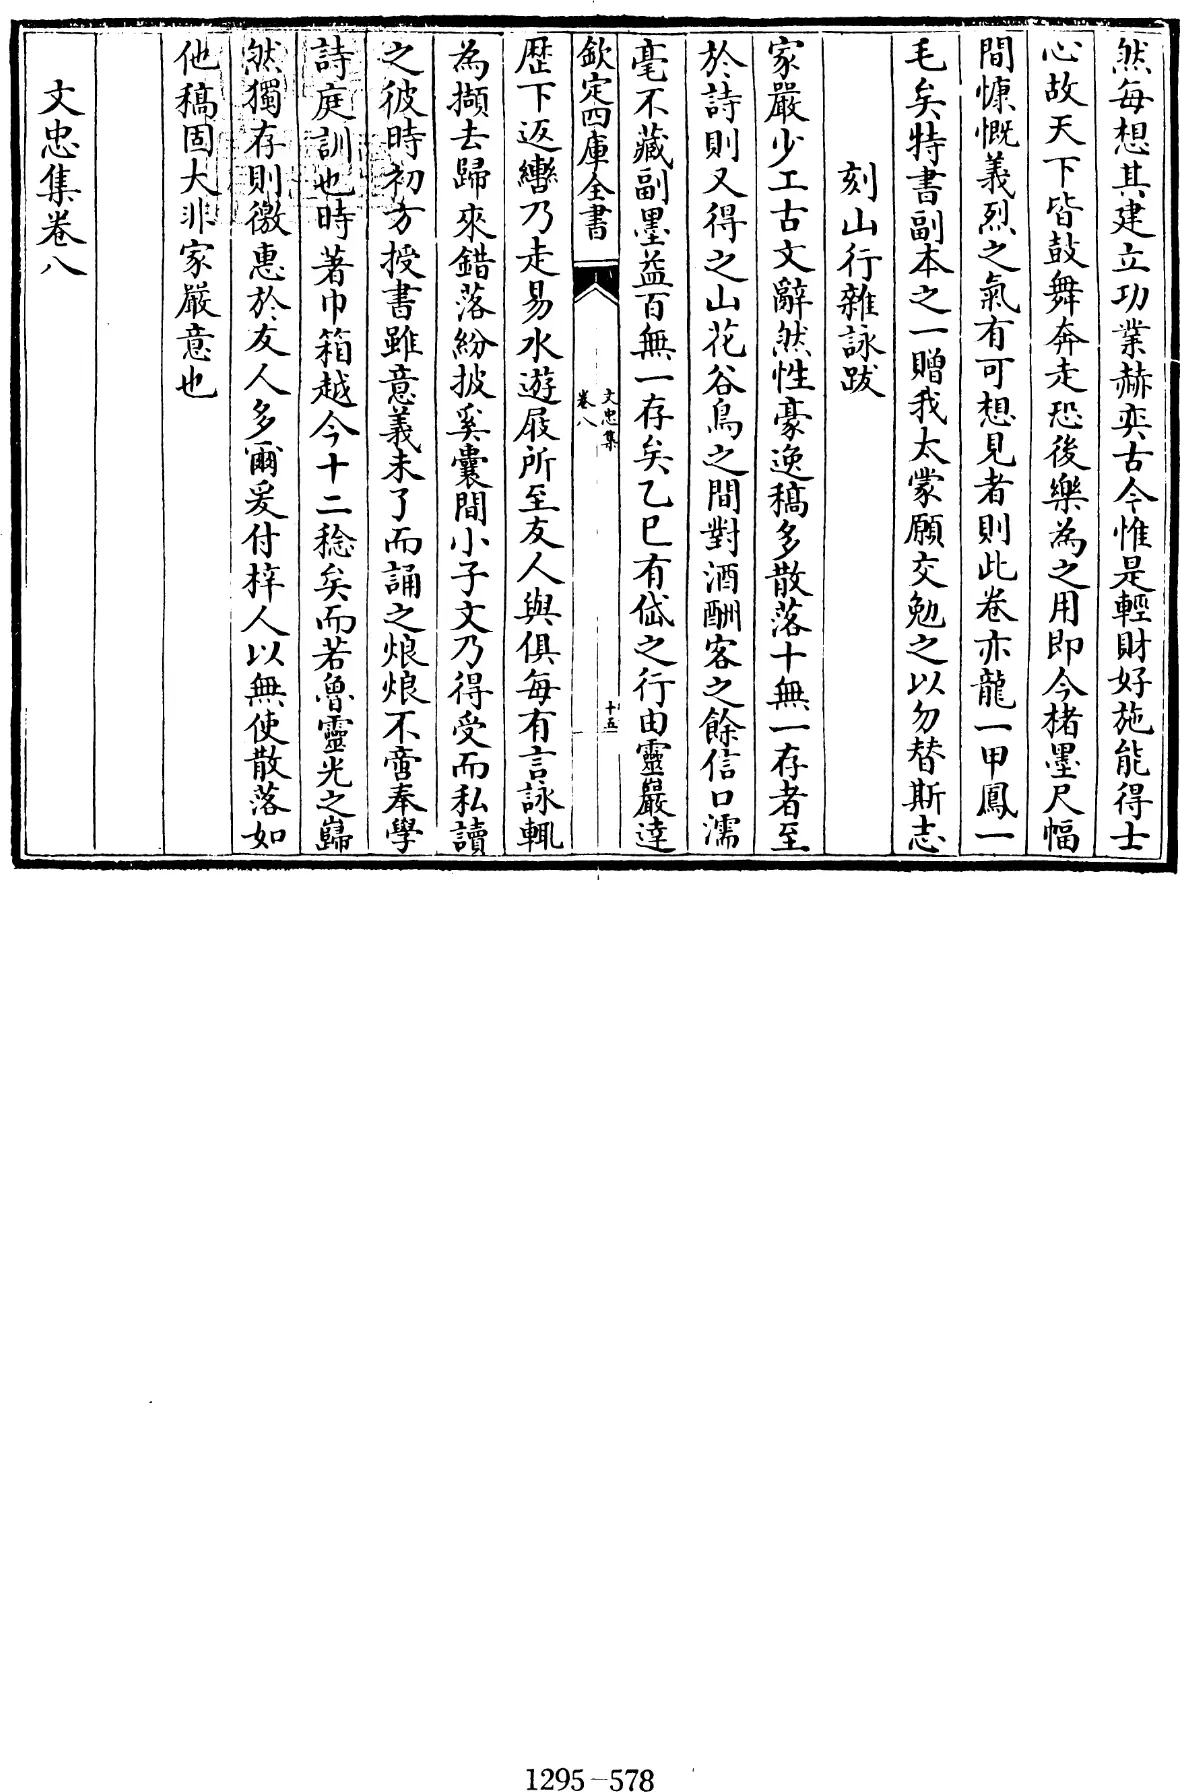 然每想其建立功業赫奕古今惟是輕財好施能得士
心故天下皆鼓舞奔走恐後樂為之用即今楮墨尺幅
間慷慨義烈之氣有可想見者則此卷亦龍一甲鳳一
毛矣特書副本之一贈我太蒙願交勉之以勿替斯志
刻山行雜詠跋
家嚴少工古文辭然性豪逸稿多散落十無一存者至
於詩則又得之山花谷鳥之間對酒酬客之餘信口濡
毫不藏副墨益百無一存矣乙巳有岱之行由靈巖達
欽定四庫全書
文忠集
卷八
十五
歷下返轡乃走易水遊屐所至友人與俱每有言詠輒
為擷去歸來錯落紛披奚囊間小子文乃得受而私讀
之彼時初方授書雖意義未了而誦之烺烺不啻奉學
詩庭訓也時著巾箱越今十二稔矣而若魯靈光之巋
然獨存則徼惠於友人多爾爰付梓人以無使散落如
他稿固大非家嚴意也
文忠集卷八
1295-578